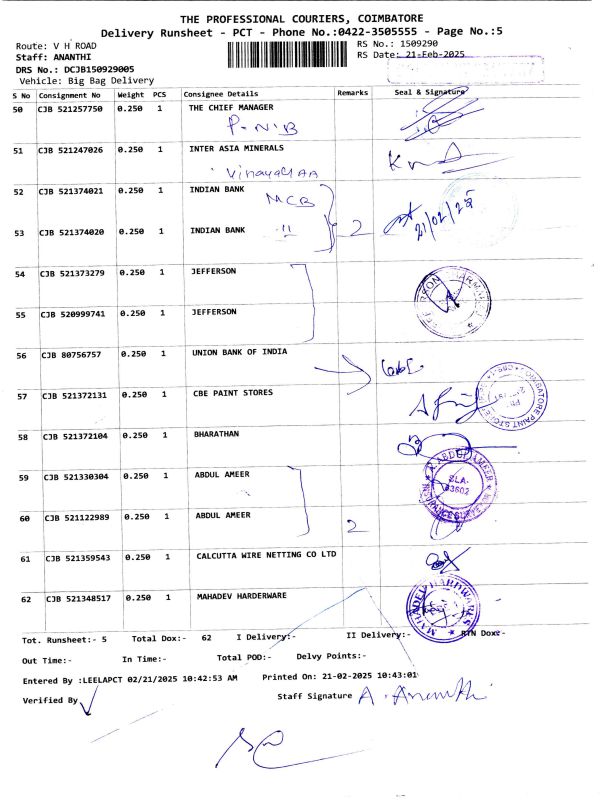 THE PROFESSIONAL COURIERS, COIMBATORE
Delivery Runsheet - PCT - Phone No.:0422-3505555 - Page No.:5
Route: V H ROAD
RS No.: 1509290
Staff: ANANTHI
RS Date: 21-Feb-2025
DRS No.: DCJB150929005
Vehicle: Big Bag Delivery
S No Consignment No Weight PCS Consignee Details Remarks Seal & Signature
50 CJB 521257750 0.250 1 THE CHIEF MANAGER
P.N.B
51 CJB 521247026 0.250 1 INTER ASIA MINERALS
52 CJB 521374021 0.250 1 INDIAN BANK
MCB
21/02/25
53 CJB 521374020 0.250 1 INDIAN BANK
2
54 CJB 521373279 0.250 1 JEFFERSON
55 CJB 520999741 0.250 1 JEFFERSON
56 CJB 80756757 0.250 1 UNION BANK OF INDIA
57 CJB 521372131 0.250 1 CBE PAINT STORES
58 CJB 521372104 0.250 1 BHARATHAN
59 CJB 521330304 0.250 1 ABDUL AMEER
ABDUL AMEER
SLA-
60 CJB 521122989 0.250 1 ABDUL AMEER
2
61 CJB 521359543 0.250 1 CALCUTTA WIRE NETTING CO LTD
62 CJB 521348517 0.250 1 MAHADEV HARDERWARE
MAHADEV HARDWARES
Tot. Runsheet:- 5 Total Dox:- 62 I Delivery:- II Delivery:- RTN Dox:-
Out Time:- In Time:- Total POD:- Delvy Points:-
Entered By :LEELAPCT 02/21/2025 10:42:53 AM Printed On: 21-02-2025 10:43:01
Verified By
Staff Signature A. Ananthi